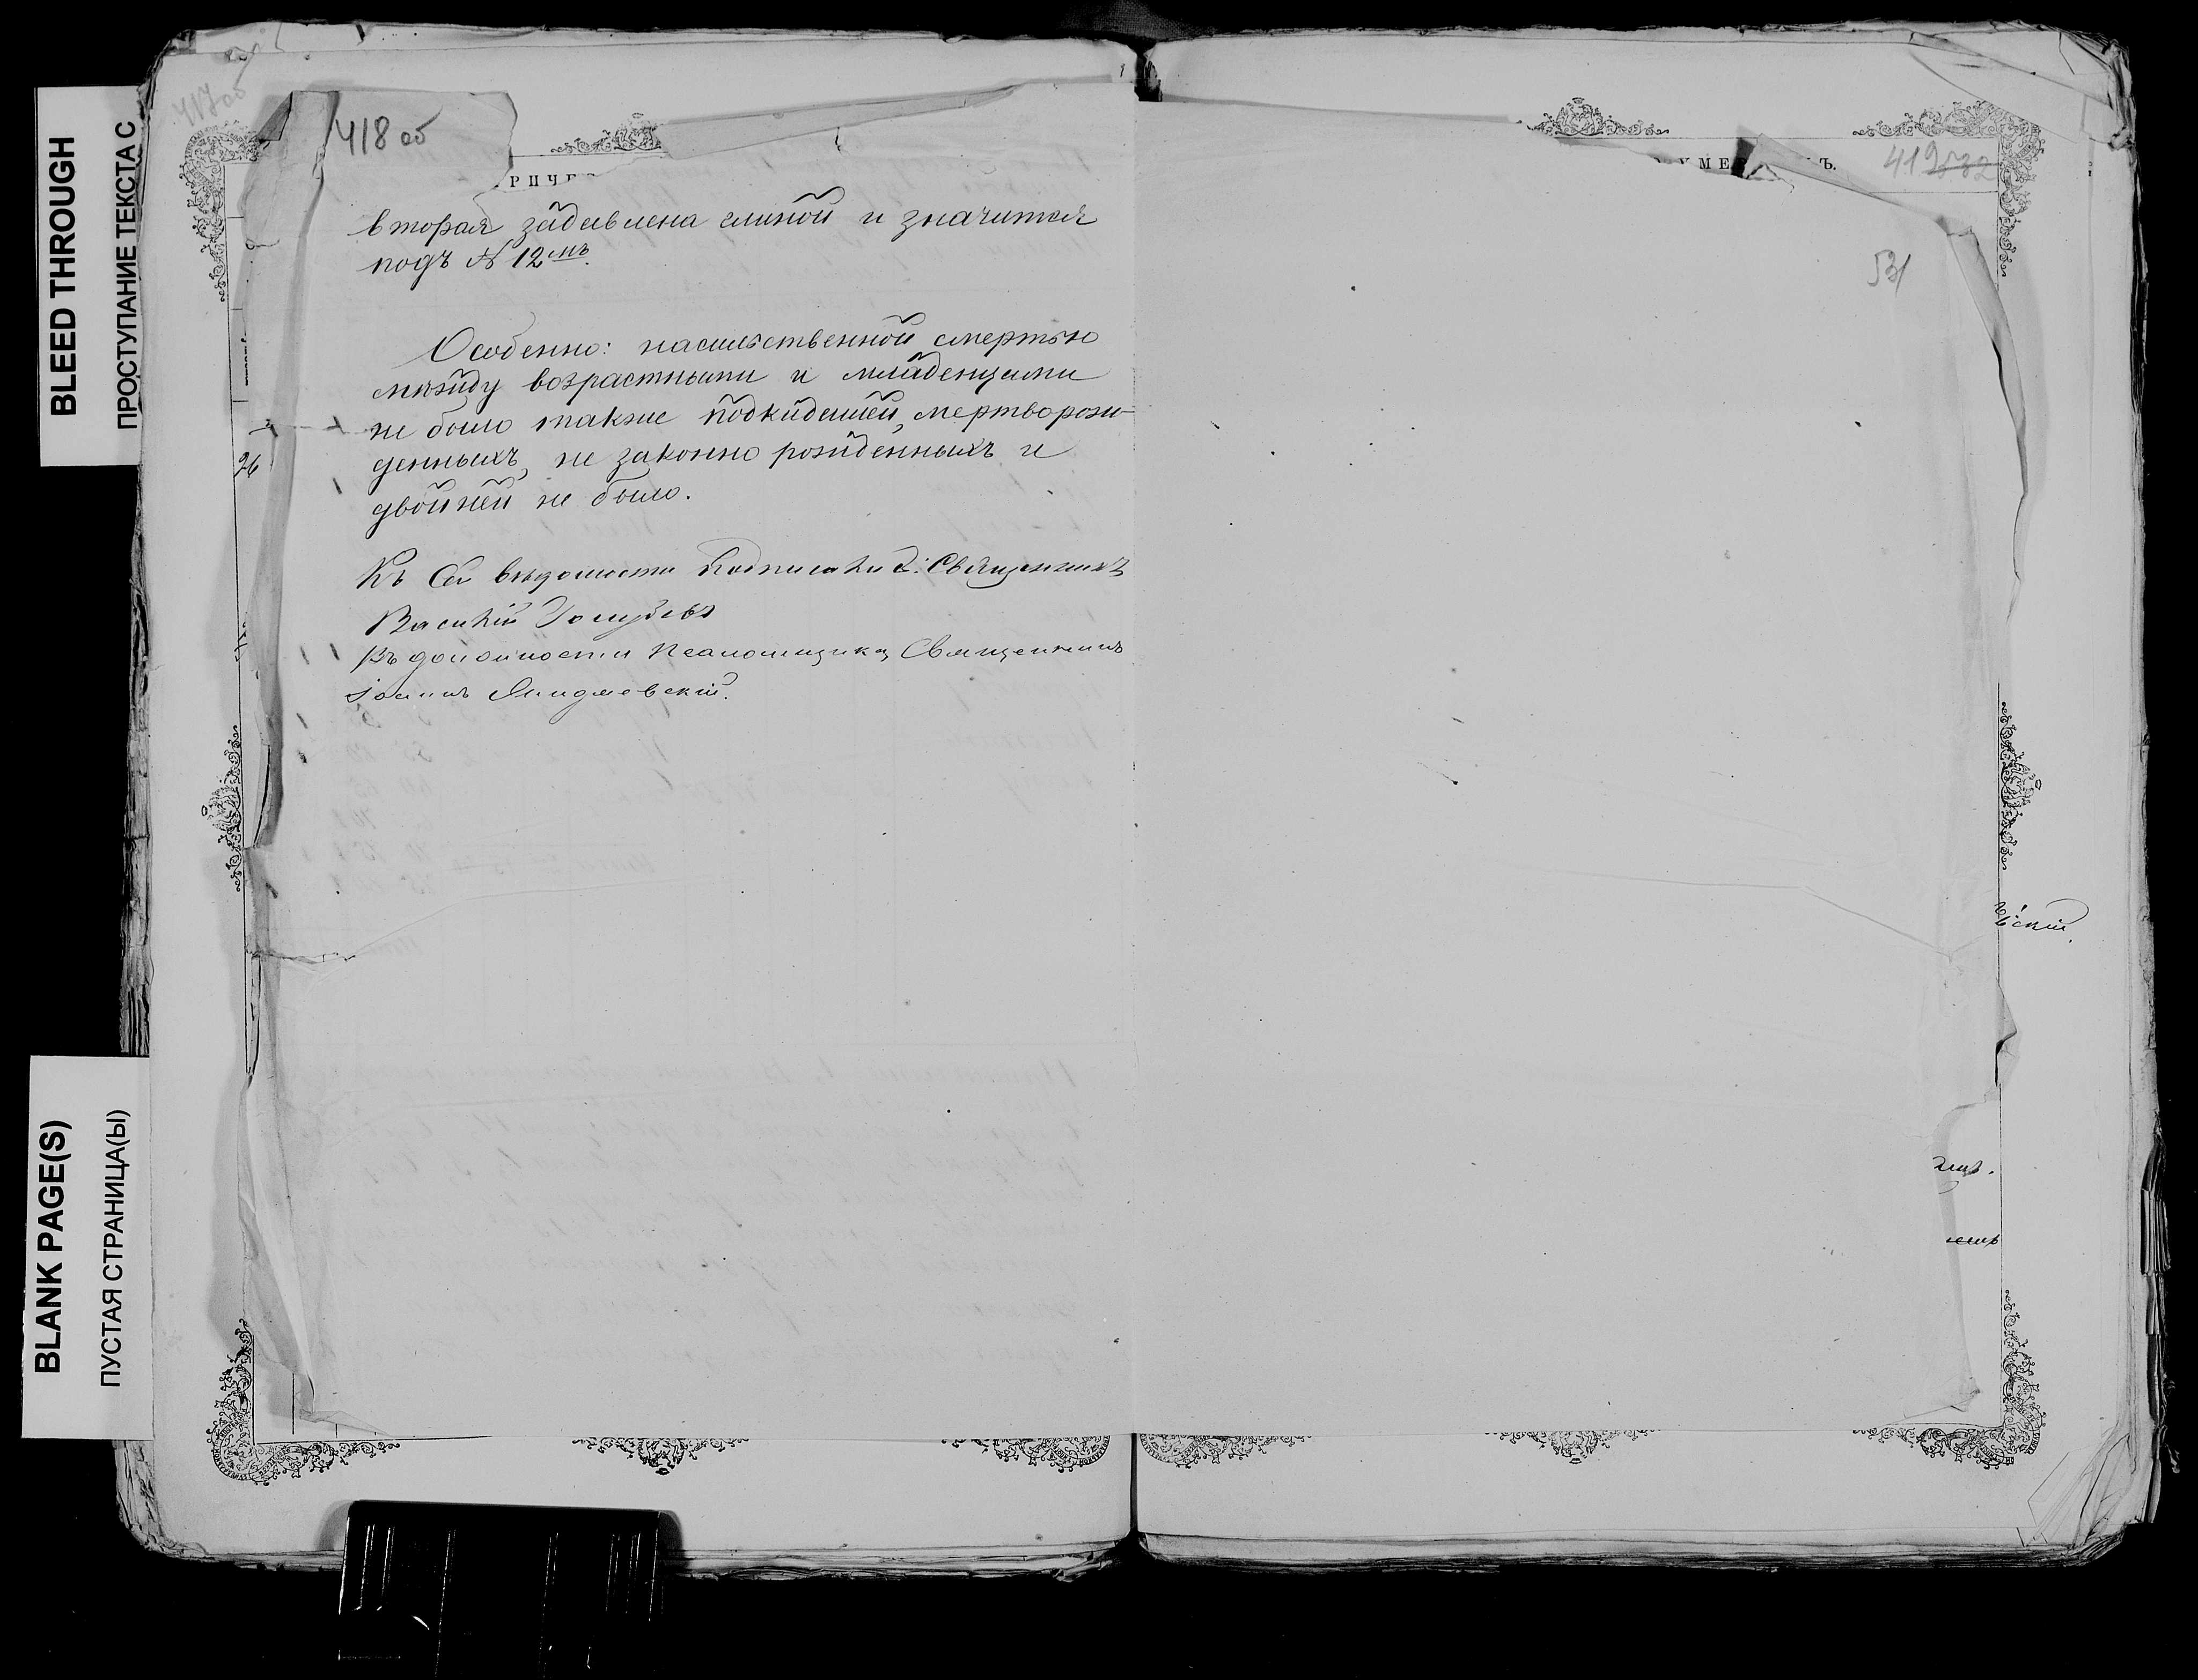 BLEED THROUGH
ПРОСТУПАНИЕ ТЕКСТА С
BLANK PAGE(S)
ПУСТАЯ СТРАНИЦА(Ы)
417 об
418 об
РИЧЕ
вторая задавлена глиной и значится
подъ № 12мъ.
Особенно: насильственной смертью
между возрастными и младенцами
не было также подкидышей, мертворож-
денныхъ, не законно рожденныхъ и
двойней не было.
Къ сей вѣдомости подписали: Священникъ
Василій Голубевъ
Въ должности Псаломщика, Священникъ
Іоаннъ
26
УМЕ
Ъ.
419
532
531